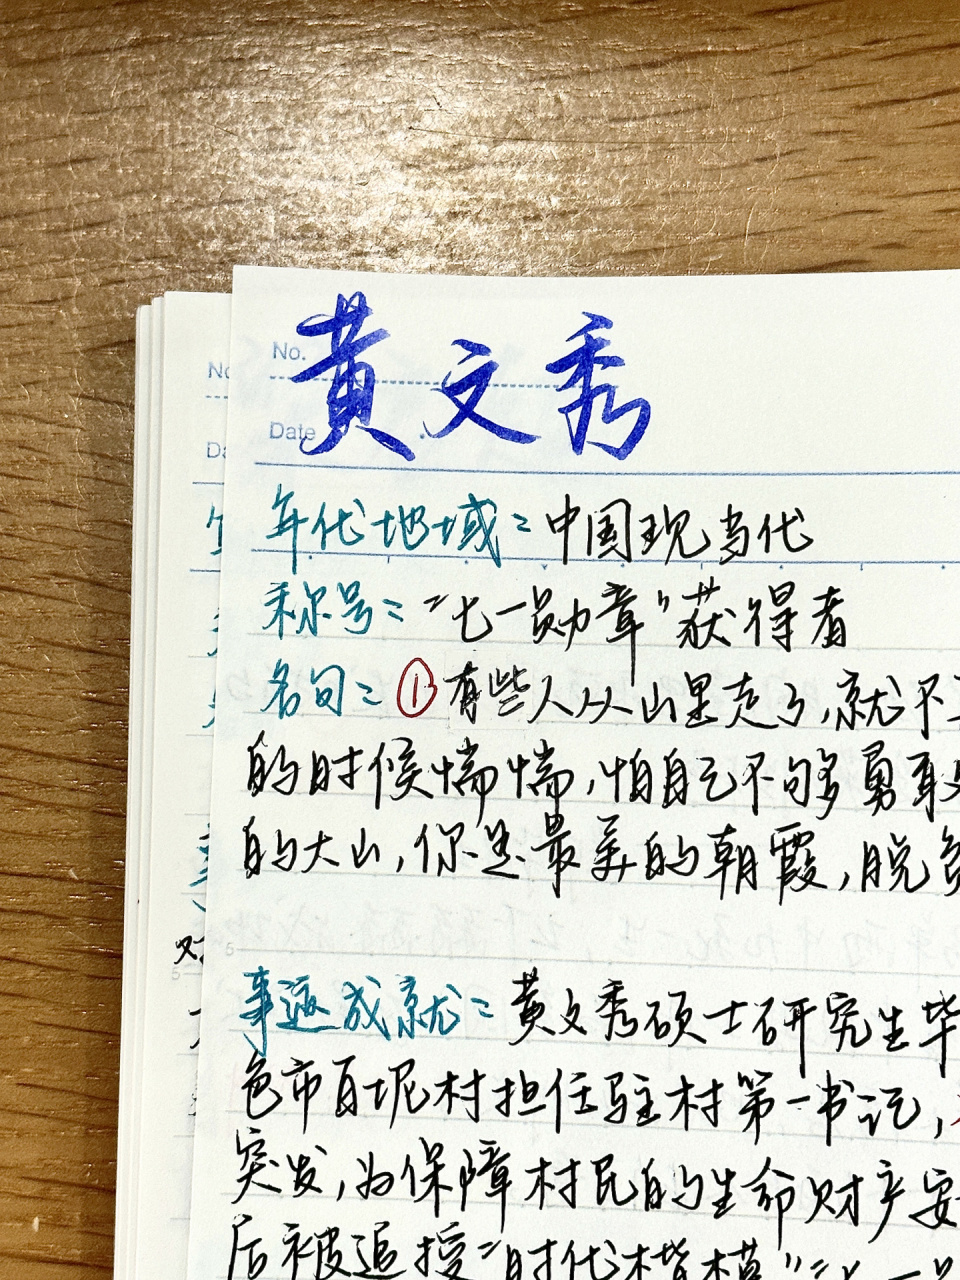 No.
黄文秀
Date
年代地域：中国现当代
称号："七一勋章"获得者
名句：①有些人从山里走了,就不
的时候惴惴,怕自己不够勇敢
的大山,你是最美的朝霞,脱贫
事迹成就：黄文秀硕士研究生毕
色市百坭村担任驻村第一书记,
突发,为保障村民的生命财产安
后被追授"时代楷模"